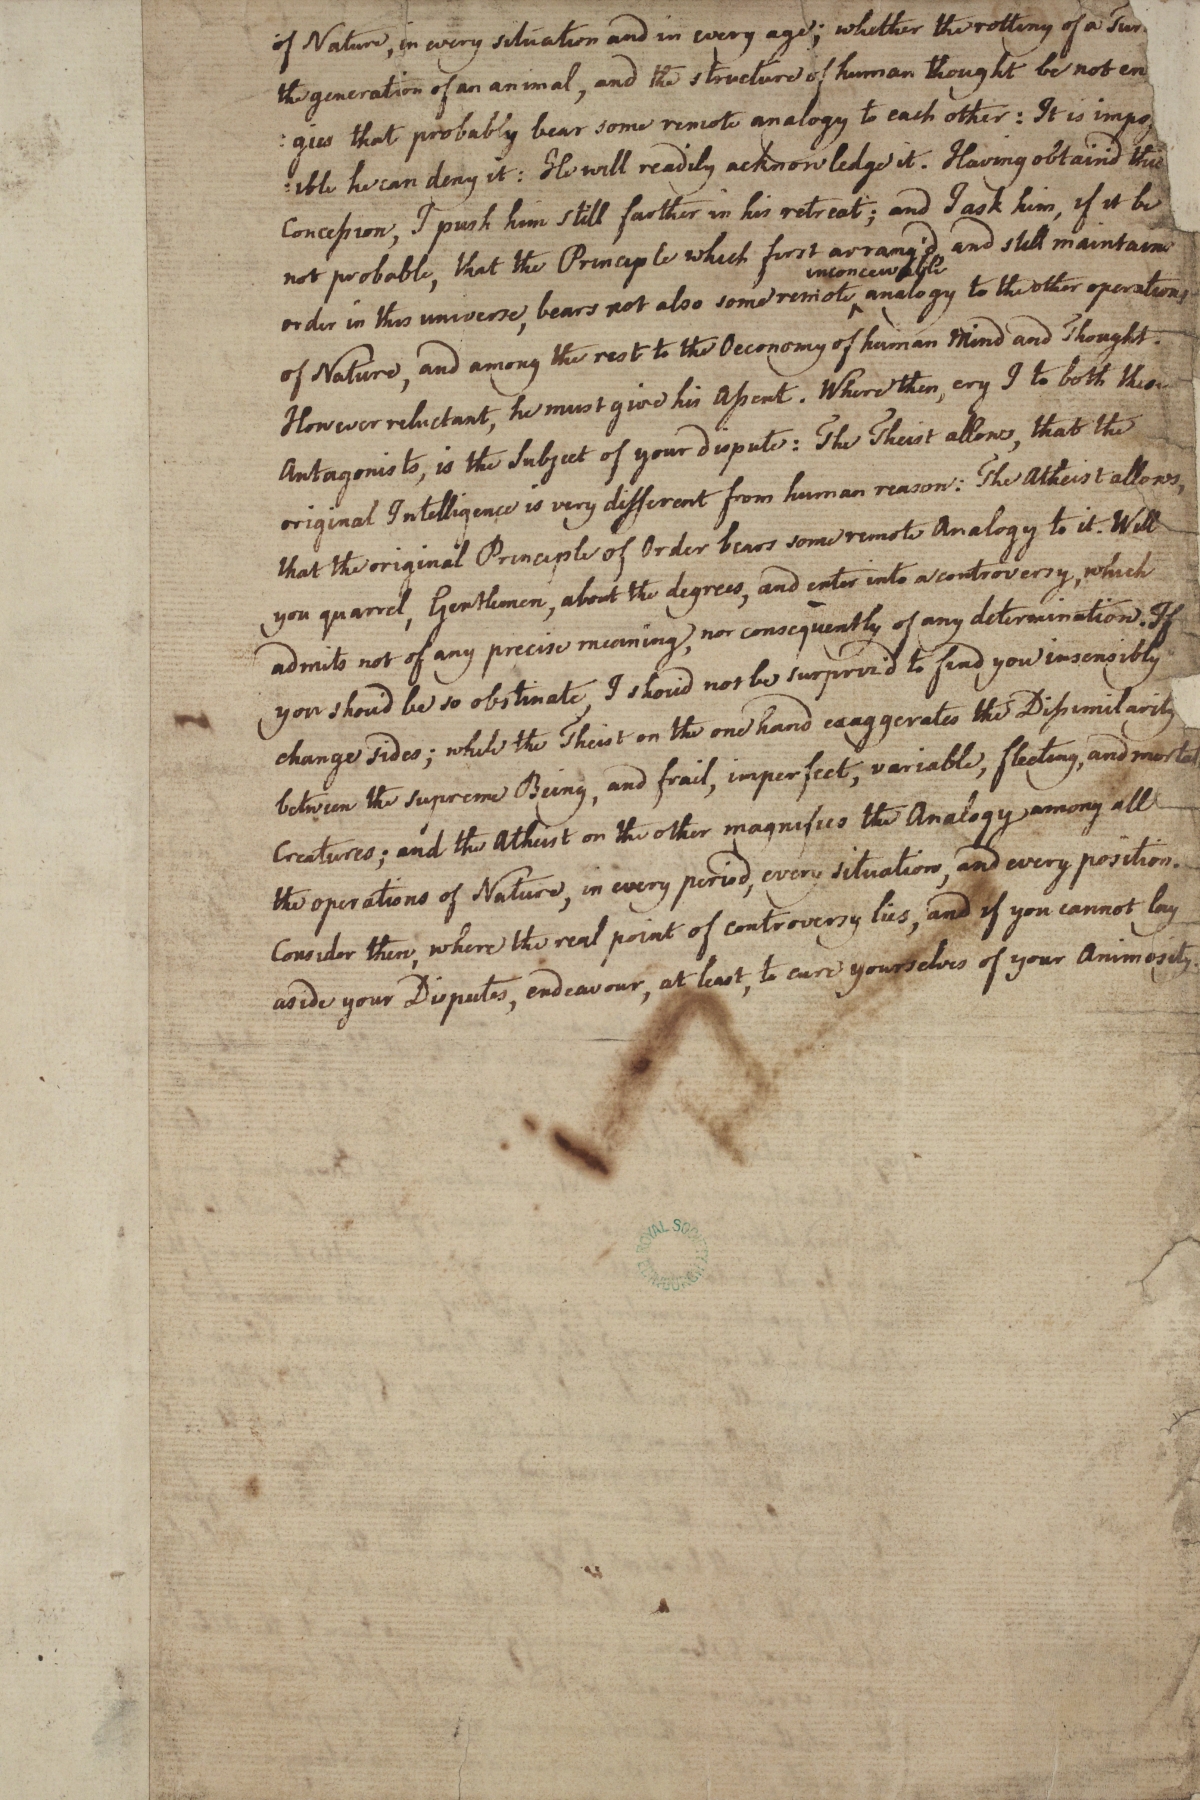 of Nature, in every situation and in every age; whether the rotting of a Tur
the generation of an animal, and the structure of human thought be not en
:gies that probably bear some remote analogy to each other: It is impos
:ible he can deny it: He will readily acknowledge it. Having obtain'd this
Concession, I push him still farther in his retreat; and I ask him, if it be
not probable, that the Principle which first arrang'd and still maintains
inconceivable
order in this universe, bears not also some remote ‸ analogy to the other operations
of Nature, and among the rest to the Oeconomy of human Mind and Thought.
However reluctant, he must give his Assent. Where then, cry I to both these
Antagonists, is the Subject of your dispute: The Theist allows, that the
original Intelligence is very different from human reason: The Atheist allows,
that the original Principle of Order bears some remote Analogy to it. Will
you quarrel, Gentlemen, about the degrees, and enter into a controversy, which
admits not of any precise meaning, nor consequently of any determination. If
you shou'd be so obstinate, I shou'd not be surpriz'd to find you insensibly
change sides; while the Theist on the one hand exaggerates the Dissimilarity
between the supreme Being, and frail, imperfect, variable, fleeting, and mortal
Creatures; and the Atheist on the other magnifies the Analogy among all
the operations of Nature, in every period, every situation, and every position.
Consider then, where the real point of controversy lies, and if you cannot lay
aside your Disputes, endeavour, at least, to cure yourselves of your Animosity.
ROYAL SOCIETY
EDINBURGH